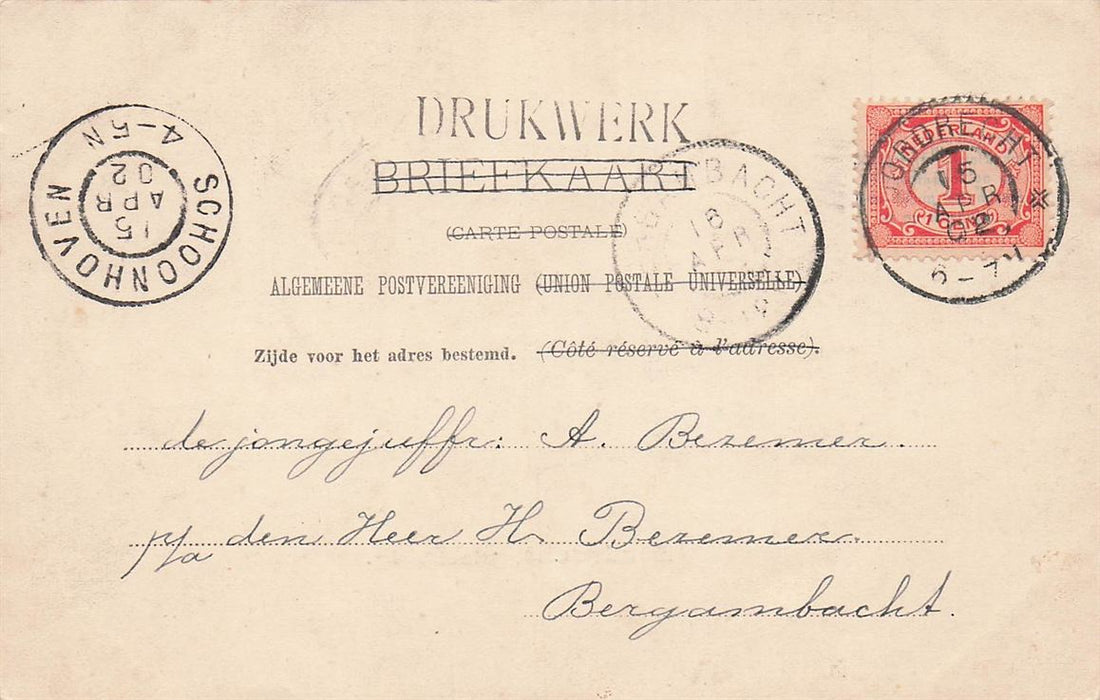 DRUKWERK
BRIEFKAART
(CARTE POSTALE)
ALGEMEENE POSTVEREENIGING (UNION POSTALE UNIVERSELLE)
Zijde voor het adres bestemd. (Côté réservé à l'adresse).
SCHOONHOVEN
15
APR
02
4-5N
BACHT
16
APR
NEDERLAND
1
CENT
DORDRECHT
15
APR
02
6-7V
de jongejuffr: A. Bezemer.
p/a den Heer H. Bezemer.
Bergambacht.